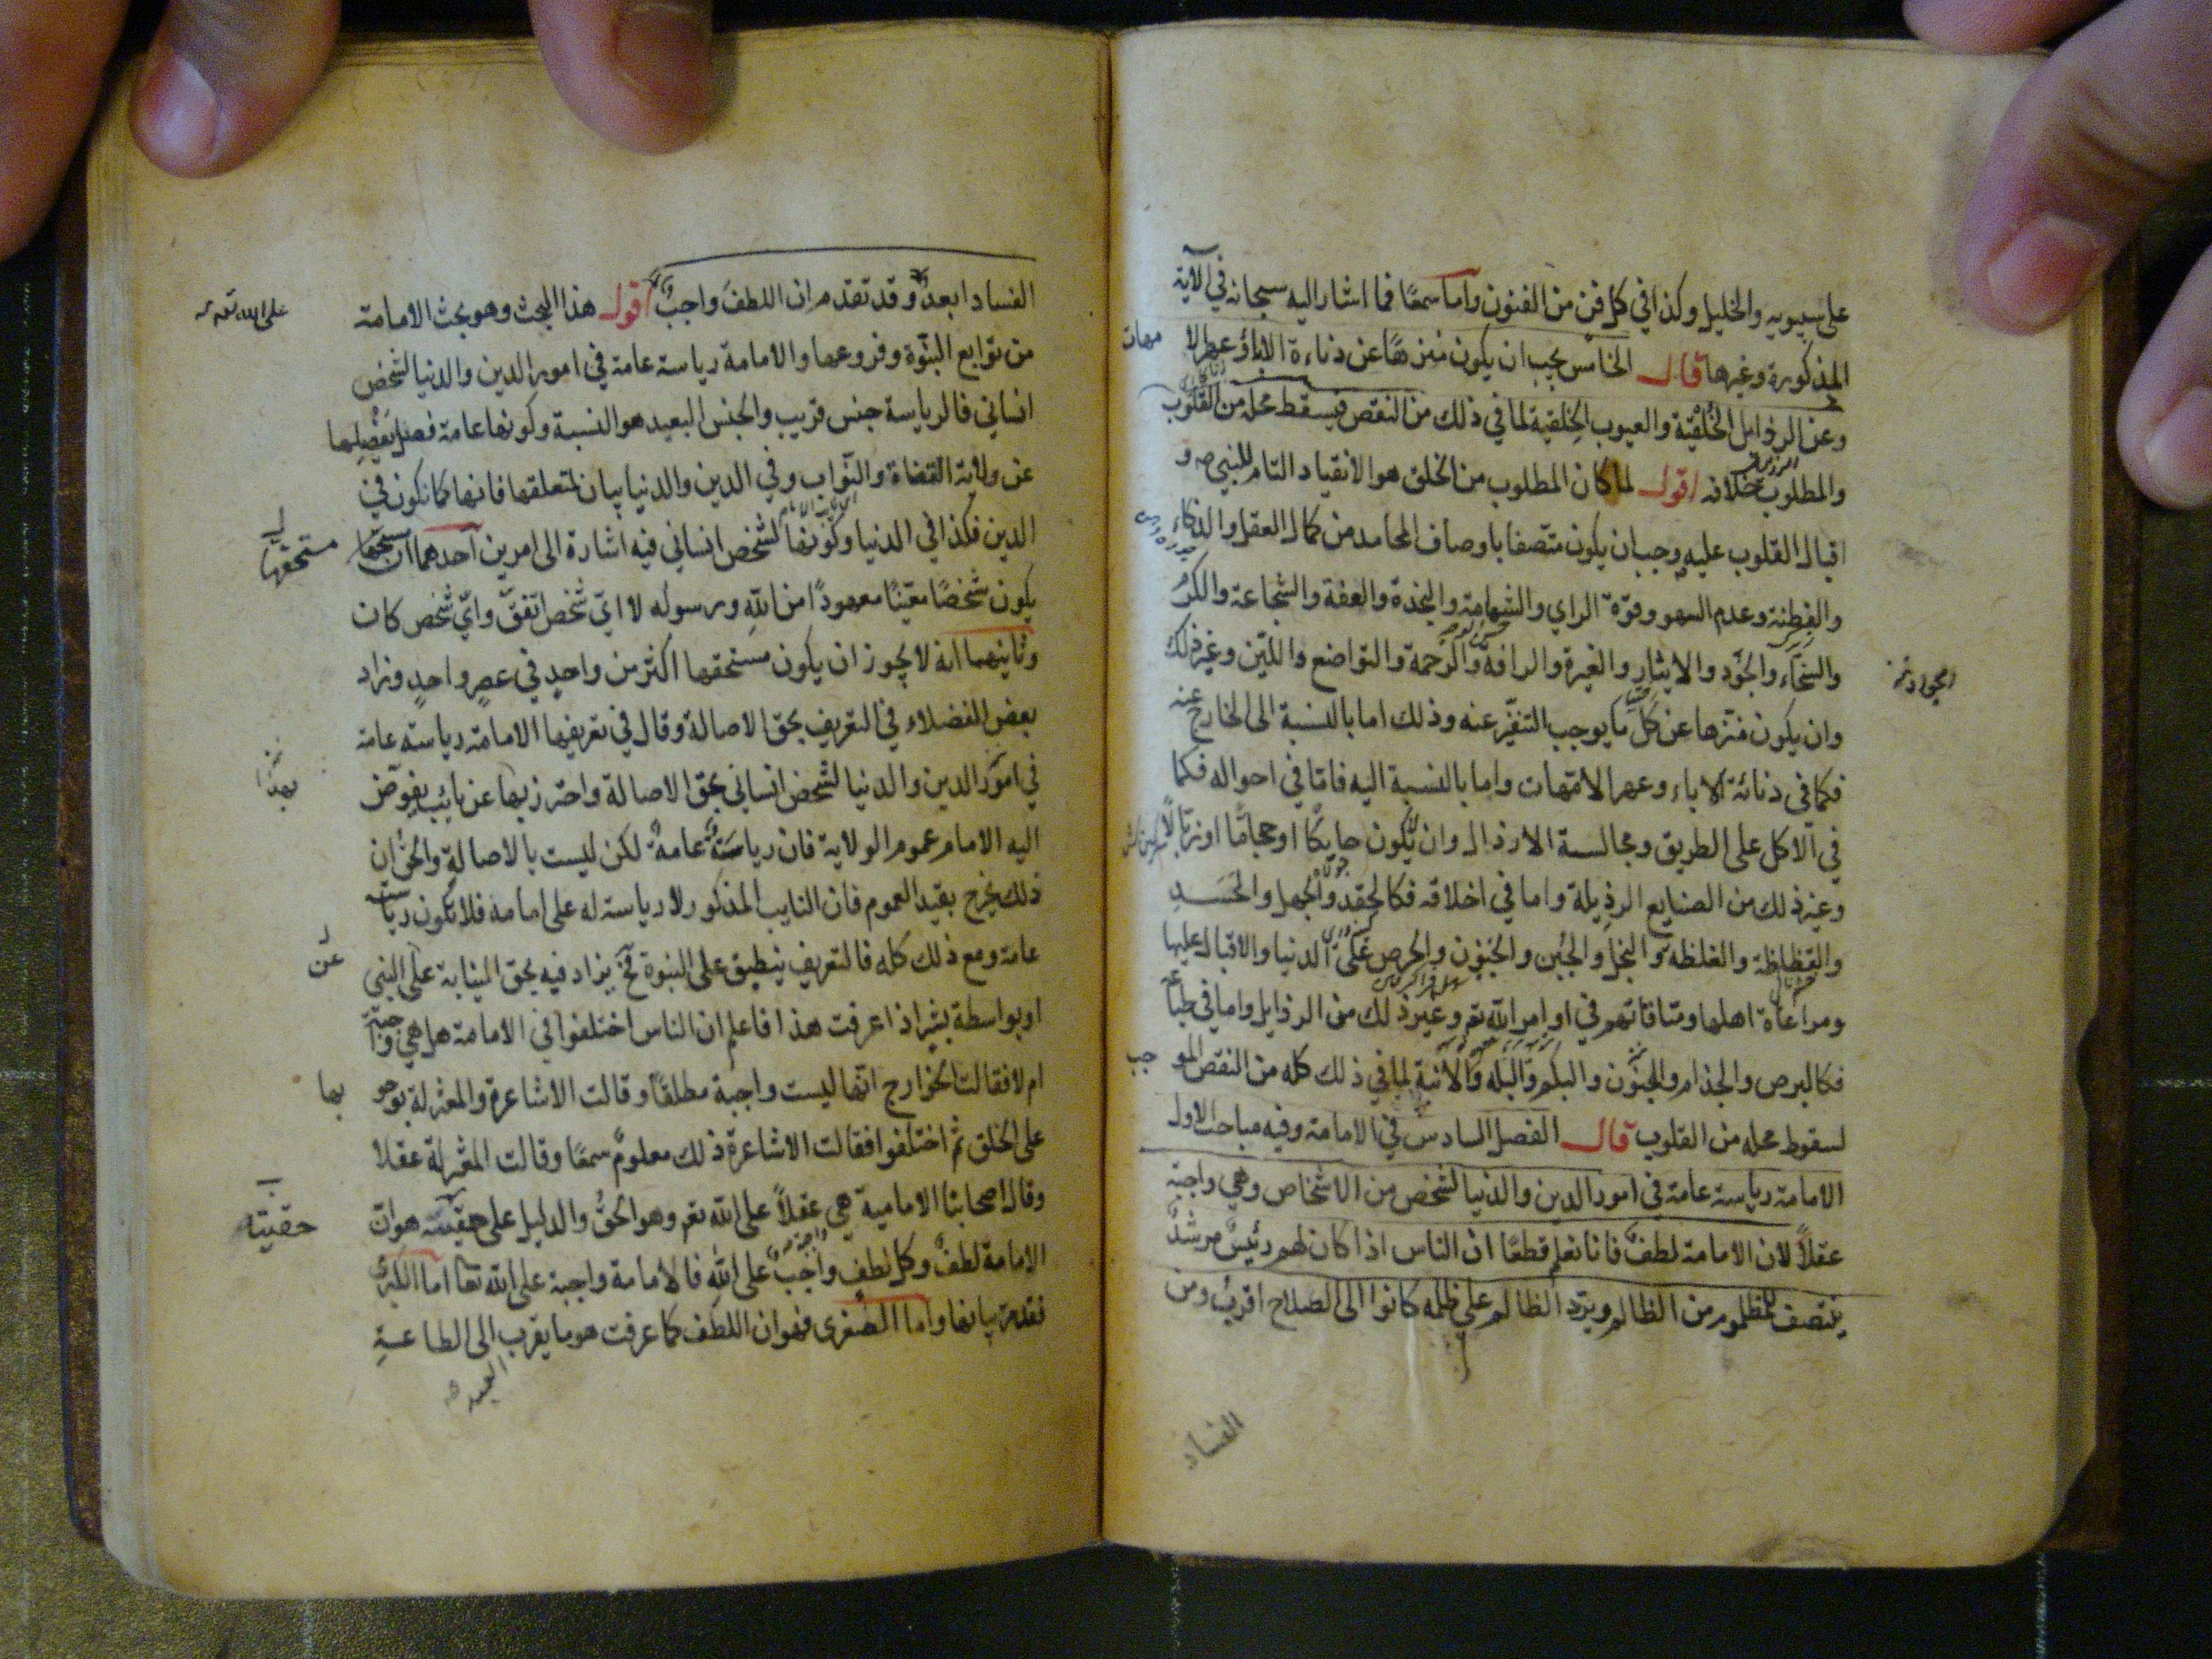 على سيبويه والخليل وكذا في كل فن من الفنون واما سمعًا فما اشار اليه سبحانه في الآية
المذكورة وغيرها قال الخامس يجب ان يكون منزهًا عن دناءة الاباؤ عهر الا
مهات
وعن الرذايل الخُلقيّة والعيوب الخِلقية لما في ذلك من النقص فيسقط محله من القلوب
والمطلوب خلافه اقول لما كان المطلوب من الخلق هو الانقياد التام للنبي ص و
اقبال القلوب عليه وجب ان يكون متصفا باوصاف المحامد من كمال العقل والذكاء
والفطنة وعدم السهو وقوّة الراي والشهامة والنجدة والعفة والشجاعة والكرم
والسخاء والجود والايثار والغيرة والرافة والرحمة والتواضع واللين وغير ذلك
وان يكون منزها عن كل ما يوجب التنفّر عنه وذلك اما بالنسبة الى الخارج عنه
فكما في دنائة الاباء وعهر الامّهات واما بالنسبة اليه فاما في احواله فكما
في الاكل على الطريق ومجالسة الارذال وان يكون حايكًا اوحجامًا اوزبّالًا
وغير ذلك من الصنايع الرذيلة واما في اخلاقه فكالحقد والجهل والحَسَدِ
والفظاظة والغلظه والبخل والجبن والجنون والحرص على الدنيا والاقبال عليها
ومراعاة اهلها ومتافاتهم في اوامر الله تع وغير ذلك من الرذايل واما في طباعه
فكالبرص والجذام والجنون والبكم والبَلَه والأبنة لما في ذلك كله من النقص المو
جب
لسقوط محله من القلوب قال الفصل السادس في الامامة وفيه مباحث الاول
الامامة رياسة عامة في امور الدين والدنيا لشخص من الاشخاص وهي واجبة
عقلاً لان الامامة لطفٌ فانا نعلم قطعًا ان الناس اذا كان لهم رئيسٌ مرشدٌ
ينتصف للمظلوم من الظالم ويرد الظالم على ظلمه كانوا الى الصلاح اقرب ومن
الفساد
الفساد ابعد وقد تقدم ان اللطف واجبٌ اقول هذا البحث وهو بحث الامامة
على الله تع
من توابع النبّوة وفروعها والامامة رياسة عامة في امور الدين والدنيا لشخص
انساني فالرياسة جنس قريب والجنس البعيد هو النسبة وكونها عامة فصل يفصلها
عن ولاية القضاة والنوّاب وفي الدين والدنيا بيان لمتعلقها فانها كما تكون في
الدين فكذا في الدنيا وكونها لشخص انساني فيه اشارة الى امرين احدهما ان
مستحقها
يكون شخصًا معيّنًا معهودًا من الله ورسوله لا ايّ شخص اتفق وايّ شخص كان
وثانيهما انه لا يجوز ان يكون مستحقها اكثر من واحدٍ في عصرٍ واحدٍ وزاد
بعض الفضلاء في التعريف بحق الاصالة وقال في تعريفها الامامة رياسة عامة
في امور الدين والدنيا لشخص انساني بحق الاصالة واحترز بها عن نائب يفوض
بهذا
اليه الامام عموم الولاية فان رياسته عامة لكن ليست بالاصالة والحق ان
ذلك يخرج بقيد العموم فان النايب المذكور لا رياسة له على امامه فلا تكون رياسته
عامة ومع ذلك كله فالتعريف ينطبق على النبوة فح يزاد فيه بحق النيابة على النبي
عن
اوبواسطة بشر اذا عرفت هذا فاعلم ان الناس اختلفوا في الامامة هل هي واجبة
ام لا فقالت الخوارج انها ليست واجبة مطلقاً وقالت الاشاعرة والمعتزلة بوجو
بها
على الخلق ثم اختلفوا فقالت الاشاعرة ذلك معلومٌ سمعًا وقالت المعتزلة عقلا
وقال اصحابنا الامامية هي عقلاً على الله تع وهو الحقُ والدليل على حقيته هو ان
حقيته
الامامة لطفٌ وكل لطف واجبٌ على الله فالامامة واجبة على الله تعا اما الكبرى
فقد مر بيانها واما الصغرى فهو ان اللطف كما عرفت هو ما يقرب الى الطاعةِ